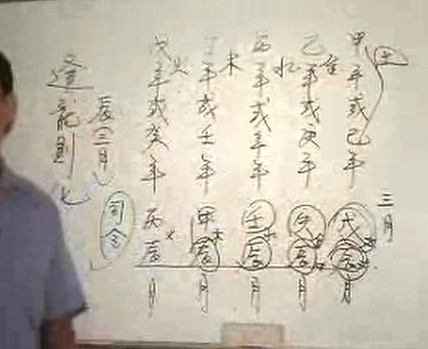 土
甲年或己年
三月
戊辰月
金
乙年或庚年
庚辰月
水
丙年或辛年
壬辰月
木
丁年或壬年
甲辰月
火
戊年或癸年
丙辰月
辰三月
司令
逢龍則化